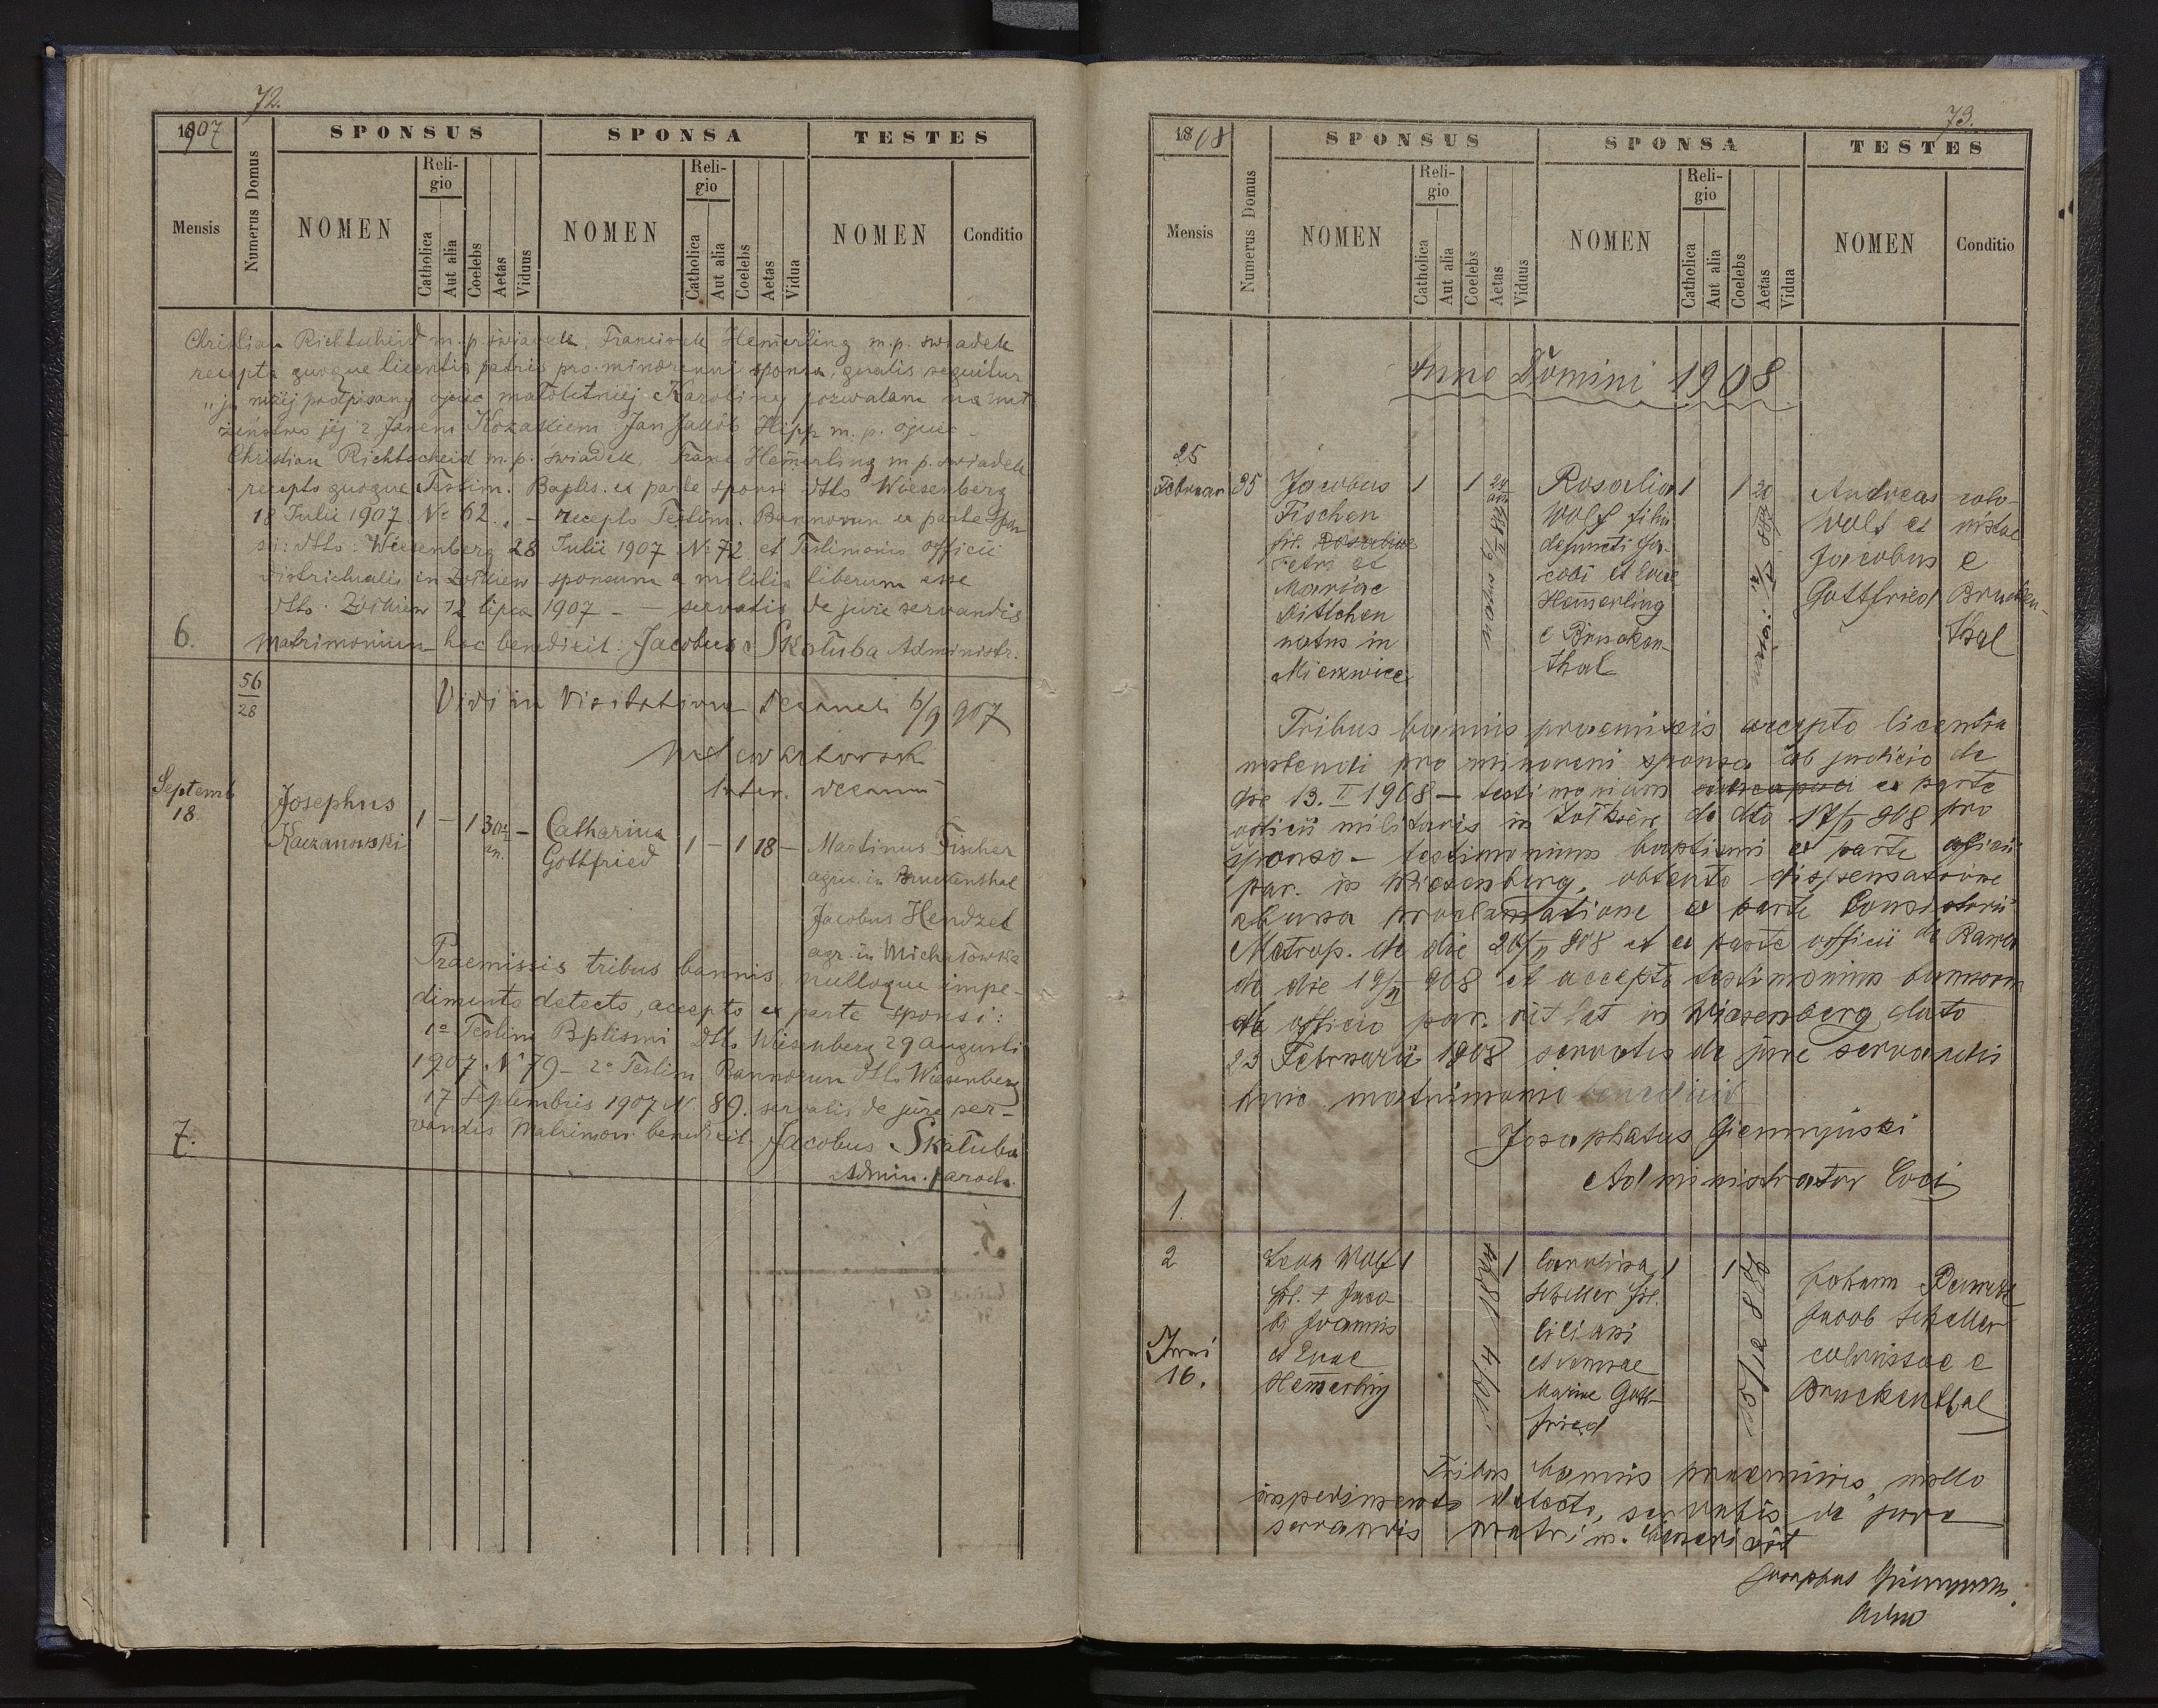 72.
1907
Mensis
Numerus Domus
SPONSUS
NOMEN
Reli-
gio
Catholica
Aut alia
Coelebs
Aetas
Viduus
SPONSA
NOMEN
Reli-
gio
Catholica
Aut alia
Coelebs
Aetas
Vidua
TESTES
NOMEN
Conditio
Christian Richtscheid m. p. świadek, Franciszek Hemerling m. p. swiadek
recepta quoque licentia patris pro minorenni sponsa, qualis sequitur
"ja niżej podpisany ojciec małoletniej Karoliny pozwalam na mał
żeństwo jej z Janem Kozakiem Jan Jakób Hipp m. p. ojciec -
Christian Richtscheid m. p. świadek, Franc Hemerling m. p. swiadek
recepto quoque Testim. Baptis. ex parte sponsi dtto Wiesenberg
18 Julii 1907 No 62. - recepto Testim. Bannorum ex parte Spon
si: dtto: Wiesenberg 28 Julii 1907 No 72 et Testimonio officii
districtualis in Żółkiew sponsum a militia liberum esse
dtto. Żółkiew 12 lipca 1907 - servatis de jure servandis
6. matrimonium hoc benedixit: Jacobus Skałuba Administr.
56
28
Vidi in Visitatione decanali 6/9 907
Inter. decanus
Septemb
18.
Josephus
Kaczanowski
1 - 1 30 -
Catharina
Gottfried
1 - 1 18 -
Martinus Fischer
agric. in Bruckenthal
Jacobus Hendzel
agr. in Michałówka
Praemissis tribus bannis, nulloque impe-
dimento detecto, accepto ex parte sponsi:
1o Testim Bptismi dtto Wiesenberg 29 augusti
1907 No 79 - 2o Testim Bannorum dtto Wiesenberg
17 Septembris 1907 N 89. servatis de jure ser-
vandis Matrimon. benedixit Jacobus Skałuba
7.
Admin. paroch.
73.
1808
Mensis
Numerus Domus
SPONSUS
NOMEN
Reli-
gio
Catholica
Aut alia
Coelebs
Aetas
Viduus
SPONSA
NOMEN
Reli-
gio
Catholica
Aut alia
Coelebs
Aetas
Vidua
TESTES
NOMEN
Conditio
Anno Domini 1908
25
Februar
35
Jacobus
Fischer
fil.
Petri et
Mariae
Dittchen
natus in
Mierzwica
1 1 24
natus
Rosalia
Wolf filia
defuncti Ja-
cobi et Evae
Hemerling
e Brucken-
thal
1 1 20
nata:
Andreas
Wolf et
Jacobus
Gottfried
colo-
nistae
e
Brucken-
thal
Tribus bannis praemissis accepto licentia
nubendi pro minoreni sponsa ab judicio de
die 13. I 1908 - testimonium ex parte
officii militaris in Żółkiew de dto 17/I 908 pro
sponso - testimonium baptismi ex parte officii
par. in Wiesenberg, obtenta dispensatione
ab una proclamatione ex parte Consistorii
Metrop. de die 20/II 908 et ex parte officii de Rawa
de die 19/II 908 et accepto testimonium bannorum
de officio par. rit lat in Wiesenberg dato
23 Februarii 1908 servatis de jure servandis
huic matrimonio benedixit
Josaphatus Giemyński
Administrator loci
1.
2
Juni
16.
Leon Wolf
fil. + Jaco-
bi Joannis
et Evae
Hemerling
1 1
10/4 1881
Carolina
Scheller fil.
Liliani
et
Mariae Gott-
fried
1 1
15/12 888
Johann
Jacob Scheller
colonistae e
Bruckenthal
Tribus bannis praemissis, nullo
impedimento detecto, servatis de jure
servandis matrim. benedixit
Josaphat Giemyński
Adm